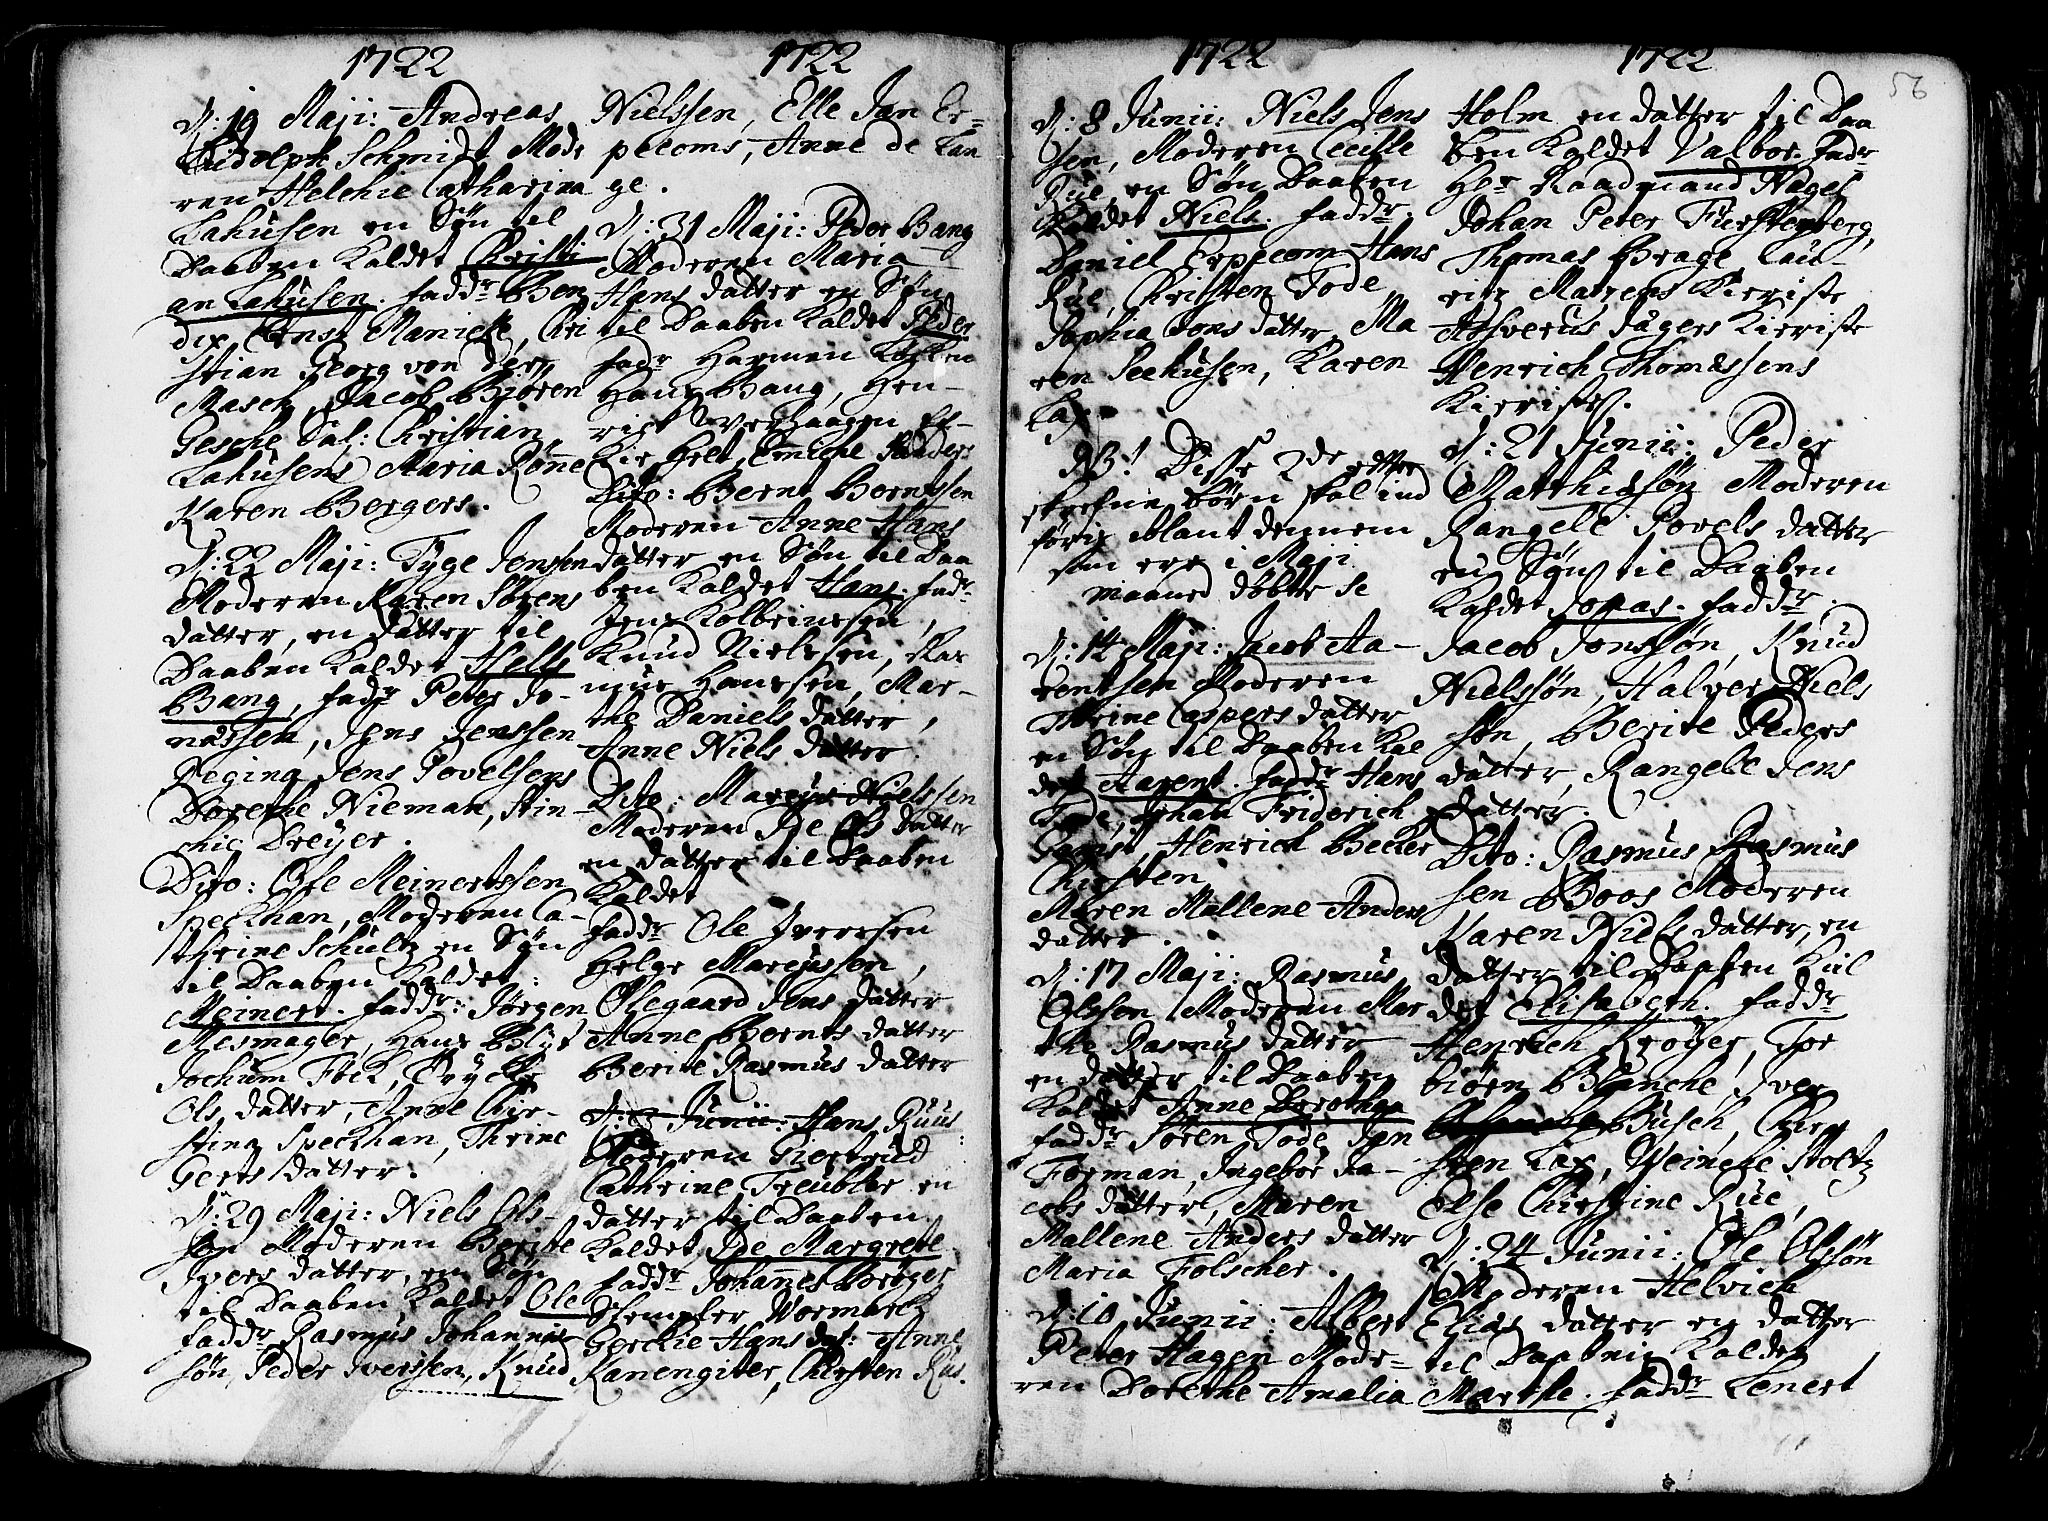 1722
d: 19 Maji: Andreas
Rudolph Schmidt Mode
ren Helchie Catharina
Lahusen en Søn til
Daaben Kaldet Christi
an Lahusen. faddr Ben
dix Ernst Manicke, Chri
stian Georg von der
Masch, Jacob Biøren
Gesche Sal: Christian
Lahusens Maria Rönne
Karen Bergers.
d: 22 Maji: Tyge Jensen
Moderen Karen Sørens
datter, en datter til
Daaben Kaldet Helle
Bang, fadr Peter Jo-
nassen, Jens Jenssen
Regina Jens Povelsens
Dorethe Nieman, Stin-
chie Dreyer.
Dito: Ole Meinertssen
Speckhan, Moderen Ca-
thrine Schultz en Søn
til Daaben Kaldet:
Meinert. faddr: Jørgen
Mesmager, Hans Blyt
Jochum Fock,
Ols datter, Anne Chir-
stina Speckhan, Thrine
Gerts datter.
d: 29 Maji: Niels Ols-
søn Moderen Berite
Ivers datter, en Søn
til Daaben Kaldet Ole
faddr Rasmus Johannis
søn, Peder Iverssen, Knud
1722
Nielssen, Elle Jan Er-
pecoms, Anne de Lan-
ge.
d: 31 Maji: Peder Bang
Moderen Maria
Hans datter en Søn
til Daaben Kaldet Peder
fadr Harmen
Hans Bang, Hen-
rich Verhaagen
Emiche
Dito: Bernt Berntssen
Moderen Anne Hans
datter en Søn til Daa
ben Kaldet Hans. fadr
Jens Kolbeinesen,
Knud Nielssen, Ras
mus Hanssen, Mar-
the Daniels datter,
Anne Niels datter
Dito: Marcus Nielssen
Moderen Ide Ols datter
en datter til Daaben
Kaldet
faddr Ole Iverssen
Helge Marcussen,
Olegaard Jens datter
Anne Bernts datter
Berite Rasmus datter
d: 3 Junii: Hans Ruus:
Moderen Giertrud
Cathrine Treubler en
datter til Daaben
Kaldet Ide Margrete.
faddr Johannes Brøger
Stempfer Wormberg
Gerckie Hans dat: Anne
Kanengiter, Chirsten Rus.
1722
d: 8 Junii: Niels Jens
sen, Moderen Cecille
Rue, en Søn Daaben
Kaldet Niels. faddr.
Daniel Erppecom Hans
Rue, Christen Tode
Sophia Jons datter Ma
ren Seehusen, Karen
Lax.
NB! Disse 2de efter
skrefne børn skal ind
føris iblant dennem
som ere i Maji
maaned døbtte se
d: 14 Maji: Jacob Aa-
rentsen Moderen
Thrine Caspers datter
en Søn til Daaben Kal
det Aarent. faddr Hans
Tode, Johan Friderich
Henrich Becker
Chirsten
Maren Mallene Anders
datter.
d: 17 Maji: Rasmus
Olssen Moderen Mar
the Rasmus datter
en datter til Daaben
Kaldet Anne Dorothea
faddr Søren Tode Jan
Forman, Ingebor Ja-
cobs datter, Maren
Mallene Anders datter
Maria Folscher.
d: 10 Junii: Albert
Peter Hagen Mode-
ren Dorethe Amalia
1722
Holm en datter til Daa
ben Kaldet Valbor. fadr
Her Raadmand Nagel
Johan Peter Fürstenberg,
Thomas Brage Lau-
ritz Marcus Kieriste
Assverus Jägers Kieriste
Henrich Thomassens
Kieriste.
d: 21 Junii: Peder
Matthiasøn Moderen
Rangele Povels datter
en Søn til Daaben
Kaldet Jonas. faddr.
Jacob Jonssøn, Knud
Nielssøn, Halver Niels
søn, Berite Peders
datter, Rangele Jens
datter.
Dito: Rasmus Rasmus
sen Boos Moderen
Karen Niels datter, en
datter til Daaben Kal
det Elisabeth. faddr
Henrich Krøyer, Tor
biørn Blanche, Iver
Busch, Chir
sten Lax, Weinche Stoltz
Else Chirstine Rue,
d: 24 Junii: Ole Olssøn
Moderen Helvich
Elias datter en datter
til Daaben Kaldet
Marthe. faddr Lenert
56